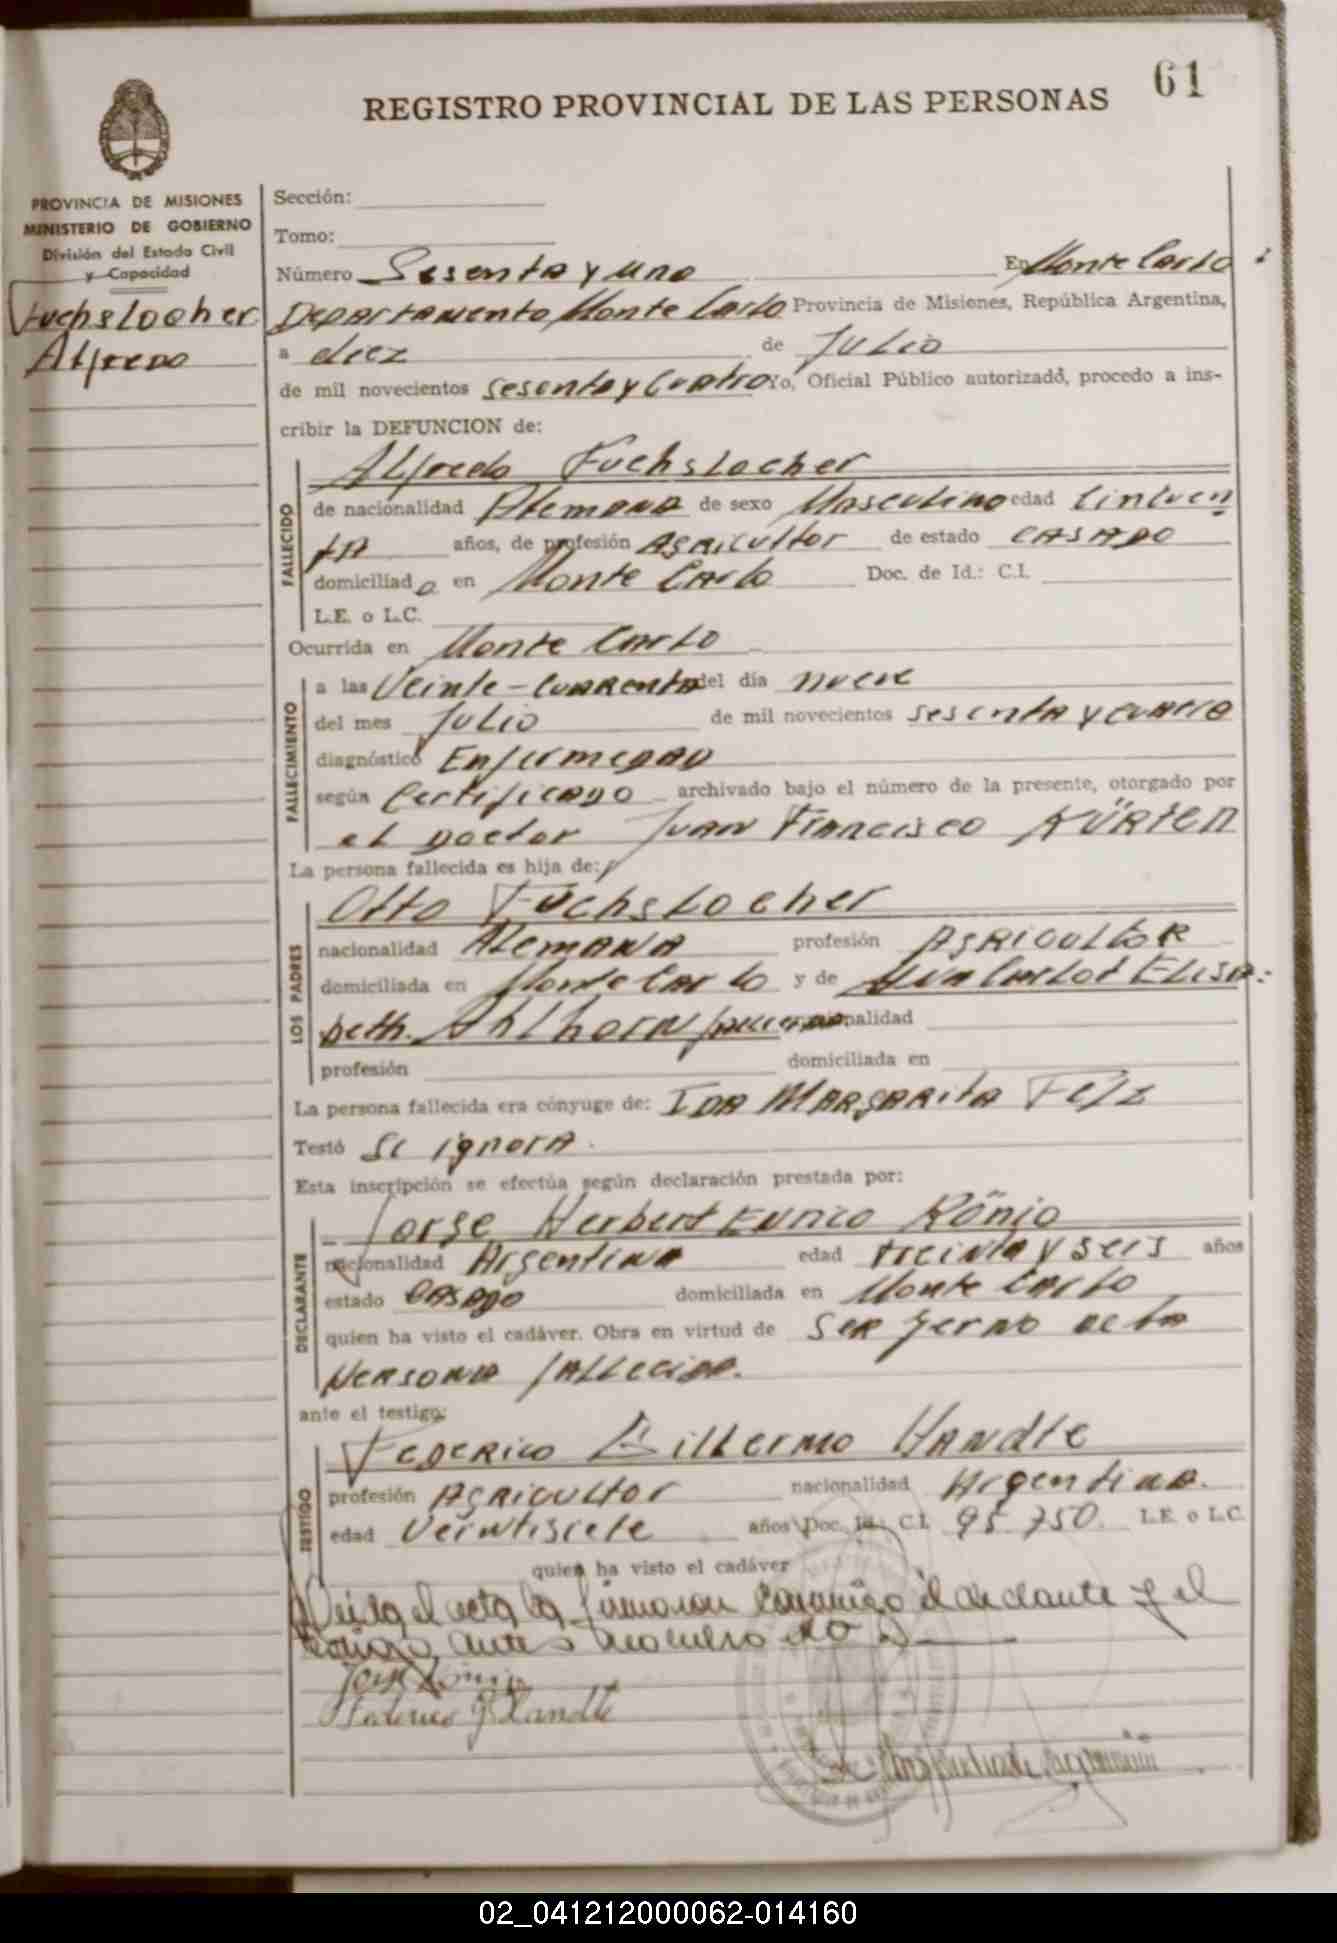 61
REGISTRO PROVINCIAL DE LAS PERSONAS
PROVINCIA DE MISIONES
MINISTERIO DE GOBIERNO
División del Estado Civil
y Capacidad
Fuchslocher
Alfredo
Sección:
Tomo:
Número Sesenta y uno En Monte Carlo
Departamento Monte Carlo Provincia de Misiones, República Argentina,
a diez de Julio
de mil novecientos sesenta y cuatro Yo, Oficial Público autorizado, procedo a ins-
cribir la DEFUNCION de:
FALLECIDO
Alfredo Fuchslocher
de nacionalidad Alemana de sexo Masculino edad Cincuen
ta años, de profesión Agricultor de estado CASADO
domiciliado en Monte Carlo Doc. de Id.: C.I.
L.E. o L.C.
Ocurrida en Monte Carlo
FALLECIMIENTO
a las Veinte-cuarenta del día nueve
del mes Julio de mil novecientos sesenta y cuatro
diagnóstico Enfermedad
según Certificado archivado bajo el número de la presente, otorgado por
el Doctor Juan Francisco KÜRTEN
La persona fallecida es hija de:
LOS PADRES
Otto Fuchslocher
nacionalidad Alemana profesión Agricultor
domiciliada en Monte Carlo y de Elisa:
beth. Ahlhorn nacionalidad
profesión domiciliada en
La persona fallecida era cónyuge de: IDA MARGARITA
Testó Se ignora.
Esta inscripción se efectúa según declaración prestada por:
DECLARANTE
Jorge Herbert König
nacionalidad Argentina edad treinta y seis años
estado Casado domiciliada en Monte Carlo
quien ha visto el cadáver. Obra en virtud de ser yerno de la
persona fallecida.
ante el testigo:
TESTIGO
Federico Gillermo HANDLE
profesión Agricultor nacionalidad Argentina.
edad Veintisiete años Doc. Id.: C.I. 95.750. L.E. o L.C.
quien ha visto el cadáver
Leida el acta la firmaron conmigo el declante y el
testigo, antes
Federico G. Handle
02_041212000062-014160